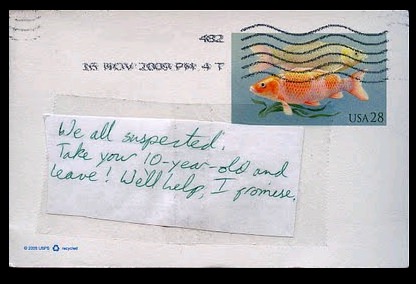 482
15 NOV 2009 PM 4 T
USA 28
We all suspected.
Take your 10-year-old and
leave! We'll help, I promise.
© 2009 USPS recycled